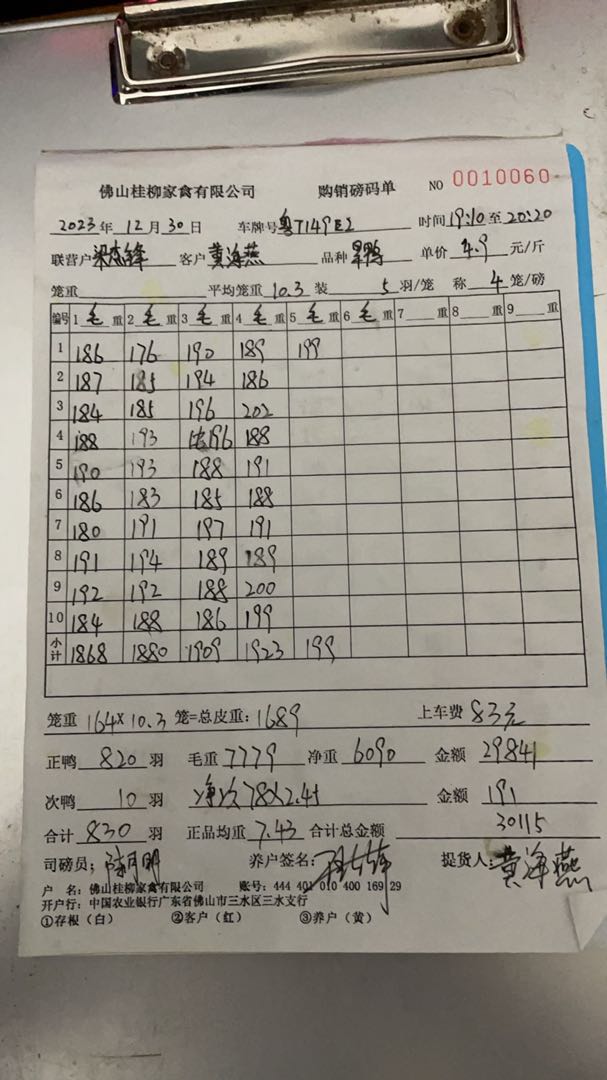 佛山桂柳家禽有限公司 购销磅码单 NO 0010060
2023年12月30日 车牌号粤T149E2 时间19:10至20:20
联营户梁杰锋 客户黄海燕 品种 鸭 单价4.9元/斤
笼重 平均笼重10.3 装5羽/笼 称4笼/磅
编号 1毛重 2毛重 3毛重 4毛重 5毛重 6毛重 7重 8重 9重
1 186 176 190 189 199
2 187 185 194 186
3 184 185 196 202
4 188 193 196 188
5 190 193 188 191
6 186 183 185 188
7 180 191 197 191
8 191 194 189 189
9 192 192 188 200
10 184 188 186 199
小计 1868 1880 1909 1923 199
笼重164×10.3笼=总皮重:1689 上车费83元
正鸭820羽 毛重7779 净重6090 金额29841
次鸭10羽 净次78×2.45 金额191
合计830羽 正品均重7.43 合计总金额30115
司磅员:陈月明 养户签名: 提货人:黄海燕
户 名:佛山桂柳家禽有限公司 账号:444 401 010 400 169 29
开户行:中国农业银行广东省佛山市三水区三水支行
①存根(白) ②客户(红) ③养户(黄)